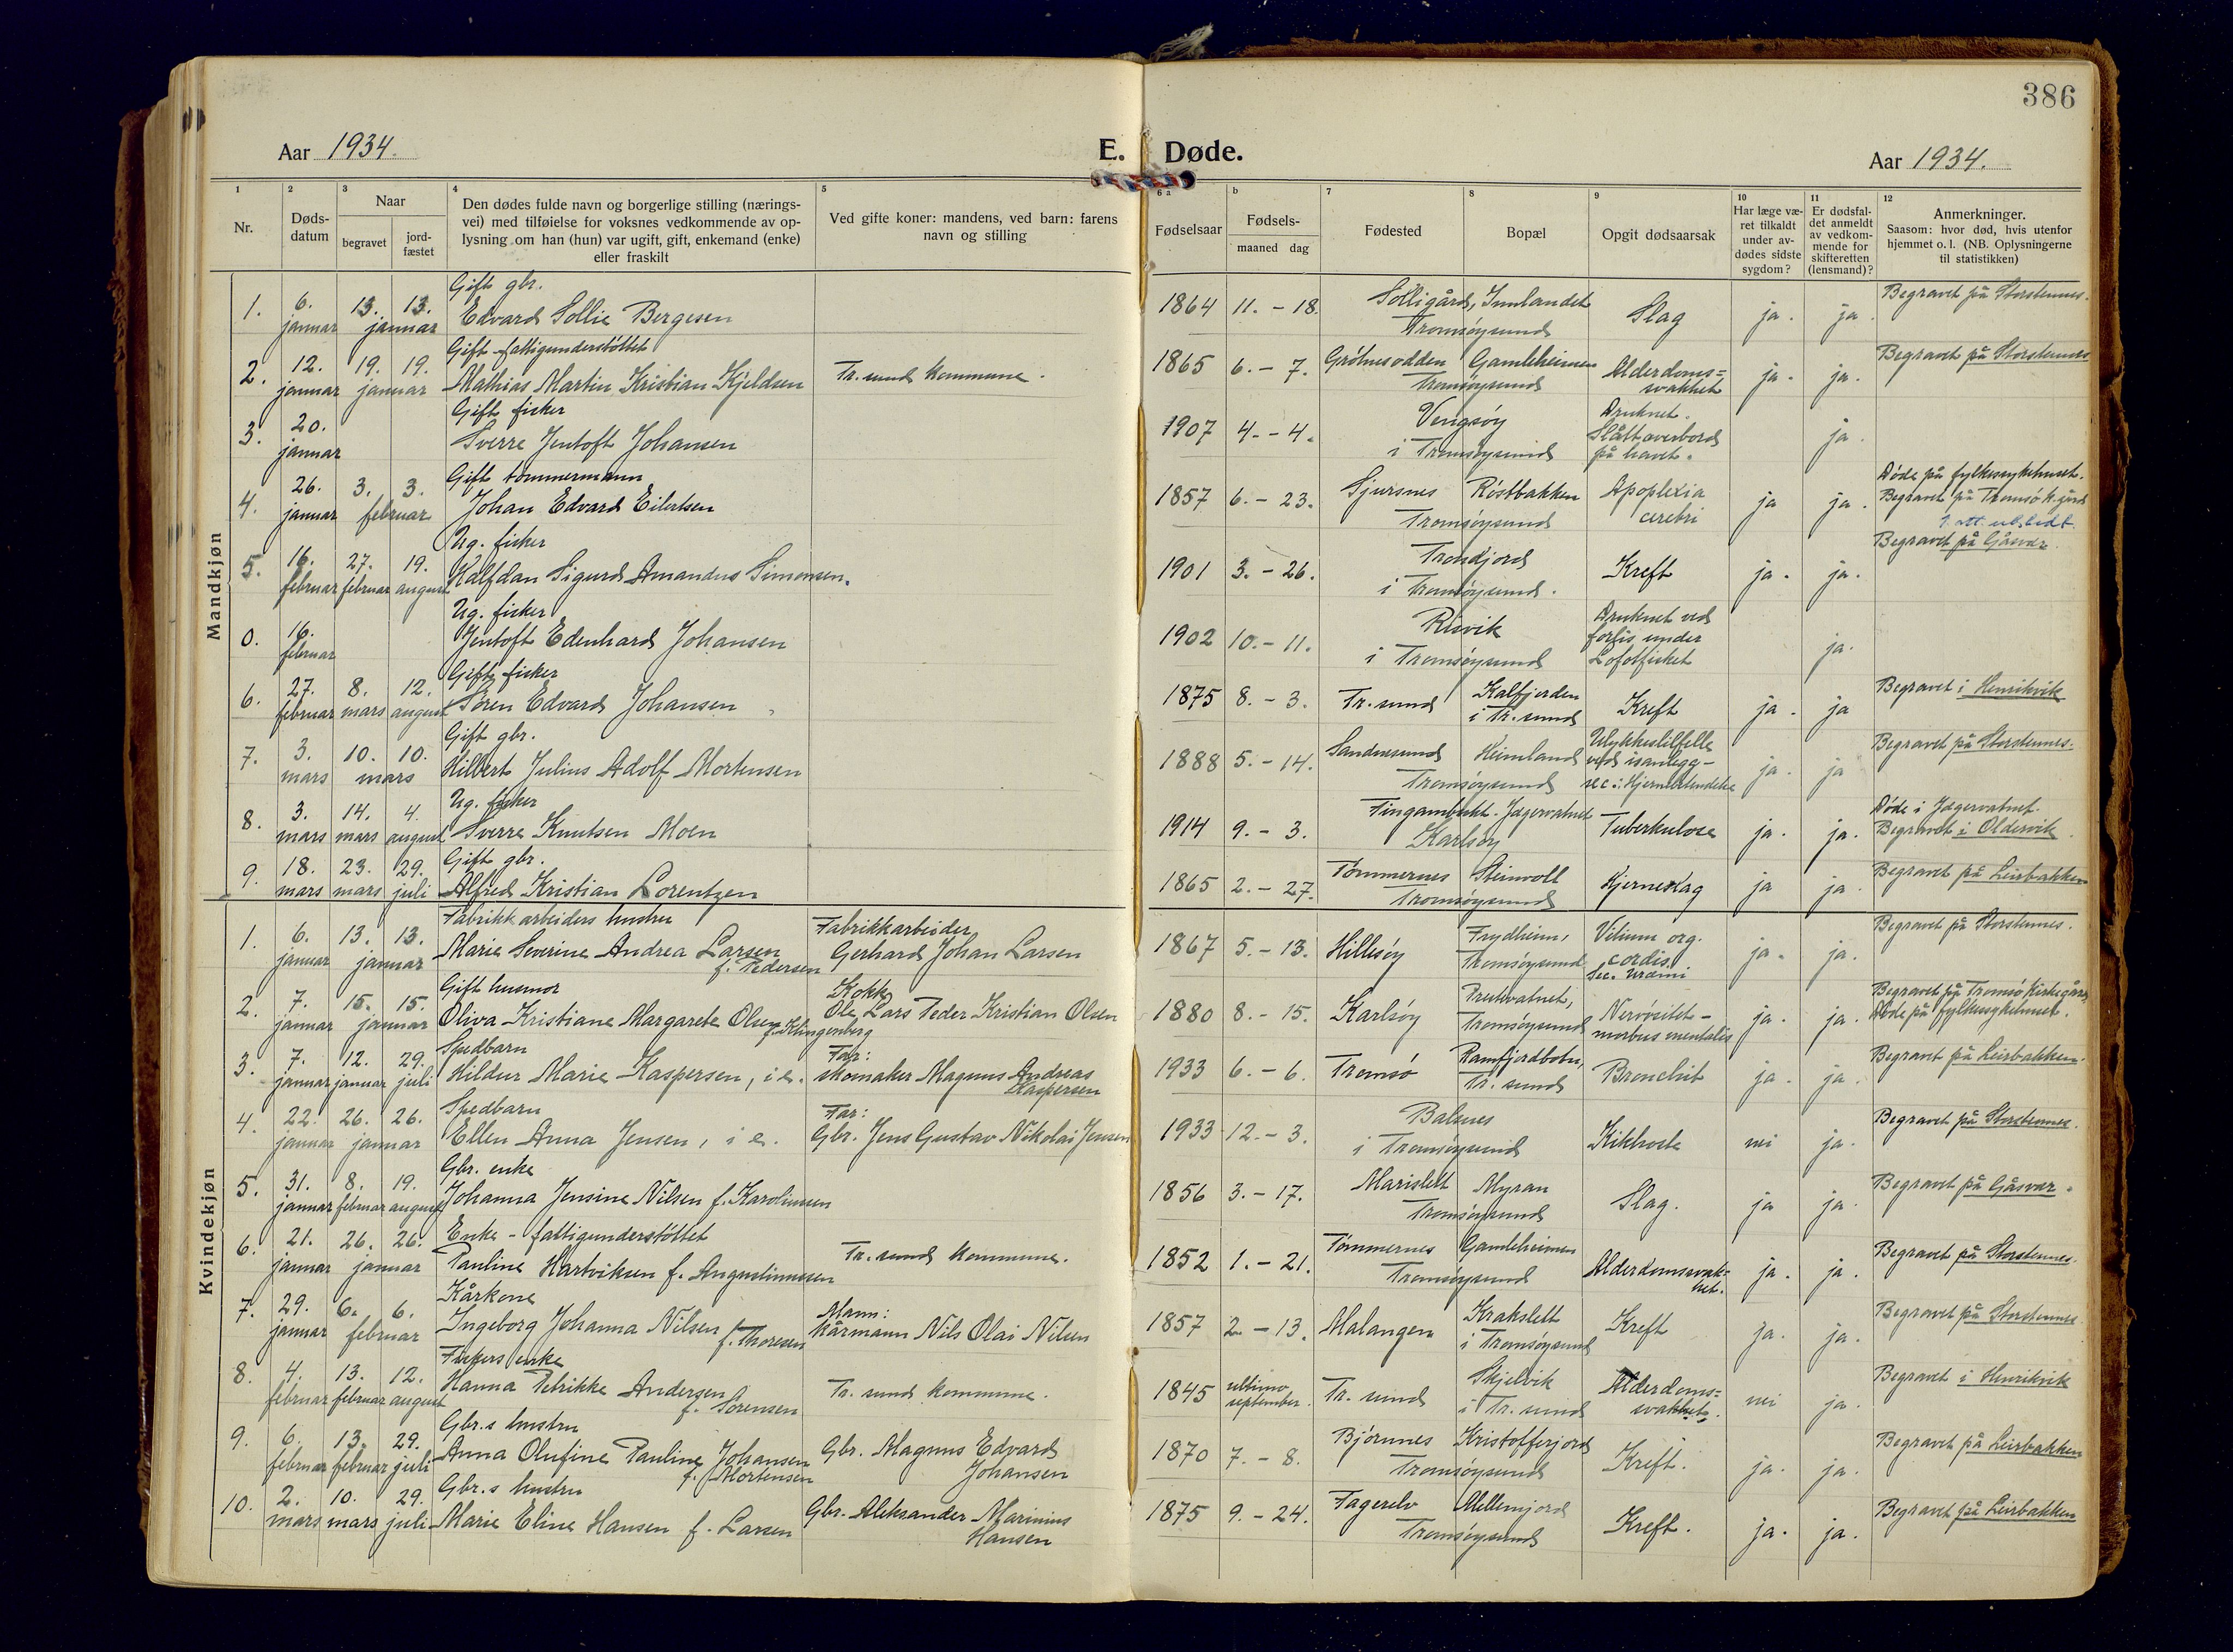 386
Aar 1934.
E. Døde.
Aar 1934.
1 2 3 4 5 6 a b 7 8 9 10 11 12
Nr.
Døds-
datum
Naar
begravet
jord-
fæstet
Den dødes fulde navn og borgerlige stilling (nærings-
vei) med tilføielse for voksnes vedkommende av op-
lysning om han (hun) var ugift, gift, enkemand (enke)
eller fraskilt
Ved gifte koner: mandens, ved barn: farens
navn og stilling
Fødselsaar
Fødsels-
maaned dag
Fødested
Bopæl
Opgit dødsaarsak
Har læge væ-
ret tilkaldt
under av-
dødes sidste
sygdom?
Er dødsfal-
det anmeldt
av vedkom-
mende for
skifteretten
(lensmand)?
Anmerkninger.
Saasom: hvor død, hvis utenfor
hjemmet o. l. (NB. Oplysningerne
til statistikken)
Mandkjøn
Gift gbr. Begravet på Storstennes.
1. 6. 13. 13. Edvard Sollie Bergesen 1864 11. - 18. Solligård, Innlandet Slag ja. ja.
januar januar Tromsøysund
Gift fattigunderstøttet Begravet på Storstennes
2. 12. 19. 19. Mathias Martin Kristian Kjeldsen Tr. sund kommune. 1865 6. - 7. Grøtnesodden Gamleheimen Alderdoms= ja. ja.
januar januar Tromsøysund svakhet
Gift fisker Vengsøy Druknet.
3. 20. Sverre Jentoft Johansen 1907 4. - 4. Slått overbord ja.
januar i Tromsøysund på havet.
Gift tømmermann Døde på fylkessykehuset.
4. 26. 3. 3. Johan Edvard Eilertsen 1857 6. - 23. Sjursnes Røstbakken Apoplexia ja ja. Begravet på Tromsø k.gård
januar februar Tromsøysund cerebri
1. att. utstedt.
Ug. fisker Trondjord Begravet på Gåsvær
5. 16. 27. 19. Halfdan Sigurd Amandus Simonsen. 1901 3. - 26. Kreft ja. ja.
februar februar august i Tromsøysund.
Ug. fisker Risvik Druknet ved
0. 16. Jentoft Edenhard Johansen 1902 10. - 11. forlis under ja.
februar i Tromsøysund Lofotfisket
Gift fisker Begravet i Henrikvik
6. 27. 8. 12. Søren Edvard Johansen 1875 8. - 3. Tr. sund Kalfjorden Kreft ja. ja
februar mars august i Tr. sund
Gift gbr. Ulykkestilfelle Begravet på Storstennes.
7. 3. 10. 10. Hilbert Julius Adolf Mortensen 1888 5. - 14. Sandnessund Heimland ved isanlegg- ja. ja
mars mars Tromsøysund sec.: Hjernebetendelse
Ug. fisker Tingambukt. Jægervatnet Døde i Jægervatnet.
8. 3. 14. 4. Sverre Knutsen Moen 1914 9. - 3. Karlsøy Tuberkulose ja. ja. Begravet i Oldervik.
mars mars august
Gift gbr. Tømmernes Steinvoll Begravet på Leirbakken
9. 18. 23. 29. Alfred Kristian Lorentzen 1865 2. - 27. Tromsøysund Hjerneslag ja ja.
mars mars juli
Kvindekjøn
Fabrikkarbeiders hustru Fabrikkarbeider Frydheim, Vitium org. Begravet på Storstennes.
1. 6. 13. 13. Marie Severine Andrea Larsen Gerhard Johan Larsen 1867 5. - 13. Hillesøy Tromsøysund cordis. ja. ja.
januar januar f. Pedersen Sec. Uræmi
Gift husmor Kokk Prestvatnet, Begravet på Tromsø Kirkegård
2. 7. 15. 15. Oliva Kristiane Margarete Olsen Ole Lars Peder Kristian Olsen 1880 8. - 15. Karlsøy Tromsøysund Nervøsitet- ja. ja. Døde på fylkessykehuset.
januar januar f. Klingenberg morbus mentalis
Spedbarn Far: Ramfjordbotn, Begravet på Leirbakken.
3. 7. 12. 29. Hildur Marie Kaspersen, i e. skomaker Magnus Andreas 1933 6. - 6. Tromsø Tr. sund Bronchit ja. ja.
januar januar juli Kaspersen
Spedbarn Far: Balsnes Begravet på Storstennes.
4. 22. 26. 26. Ellen Anna Jensen, i e. Gbr. Jens Gustav Nikolai Jensen 1933 12. - 3. Kikhoste nei ja.
januar januar i Tromsøysund
Gbr. enke Marislett Myran Begravet på Gåsvær.
5. 31. 8. 19. Johanna Jensine Nilsen f. Karoliussen 1856 3. - 17. Slag. ja ja.
januar februar august Tromsøysund
Enke - fattigunderstøttet Begravet på Storstennes.
6. 21. 26. 26. Pauline Hartviksen f. Augustinussen Tr. sund kommune. 1852 1. - 21. Tømmernes Gamleheimen Alderdomsvak= ja. ja.
januar januar Tromsøysund het.
Kårkone Mann: Begravet på Storstennes
7. 29. 6. 6. Ingeborg Johanna Nilsen kårmann Nils Olai Nilsen 1857 2. - 13. Malangen Krakslett Kreft ja. ja.
januar februar f. Thoresen i Tromsøysund
Fiskers enke Begravet i Henrikvik
8. 4. 13. 12. Hanna Petrikke Andersen Tr. sund kommune. 1845 ultimo Tr. sund Skjelvik Alderdoms= nei ja.
februar februar august f. Sørensen september. i Tr. sund svakhet.
Gbr.s hustru Begravet på Leirbakken
9. 6. 13. 29. Anna Olufine Pauline Johansen Gbr. Magnus Edvard 1870 7. - 8. Bjørnnes Kristofferjord Kreft. ja. ja.
februar februar juli f. Mortensen Johansen Tromsøysund
Gbr.s hustru Begravet på Leirbakken
10. 2. 10. 29. Marie Eline Hansen f. Larsen Gbr. Aleksander Marinius 1875 9. - 24. Fagerelv Mellemjord Kreft. ja. ja.
mars mars juli Hansen Tromsøysund